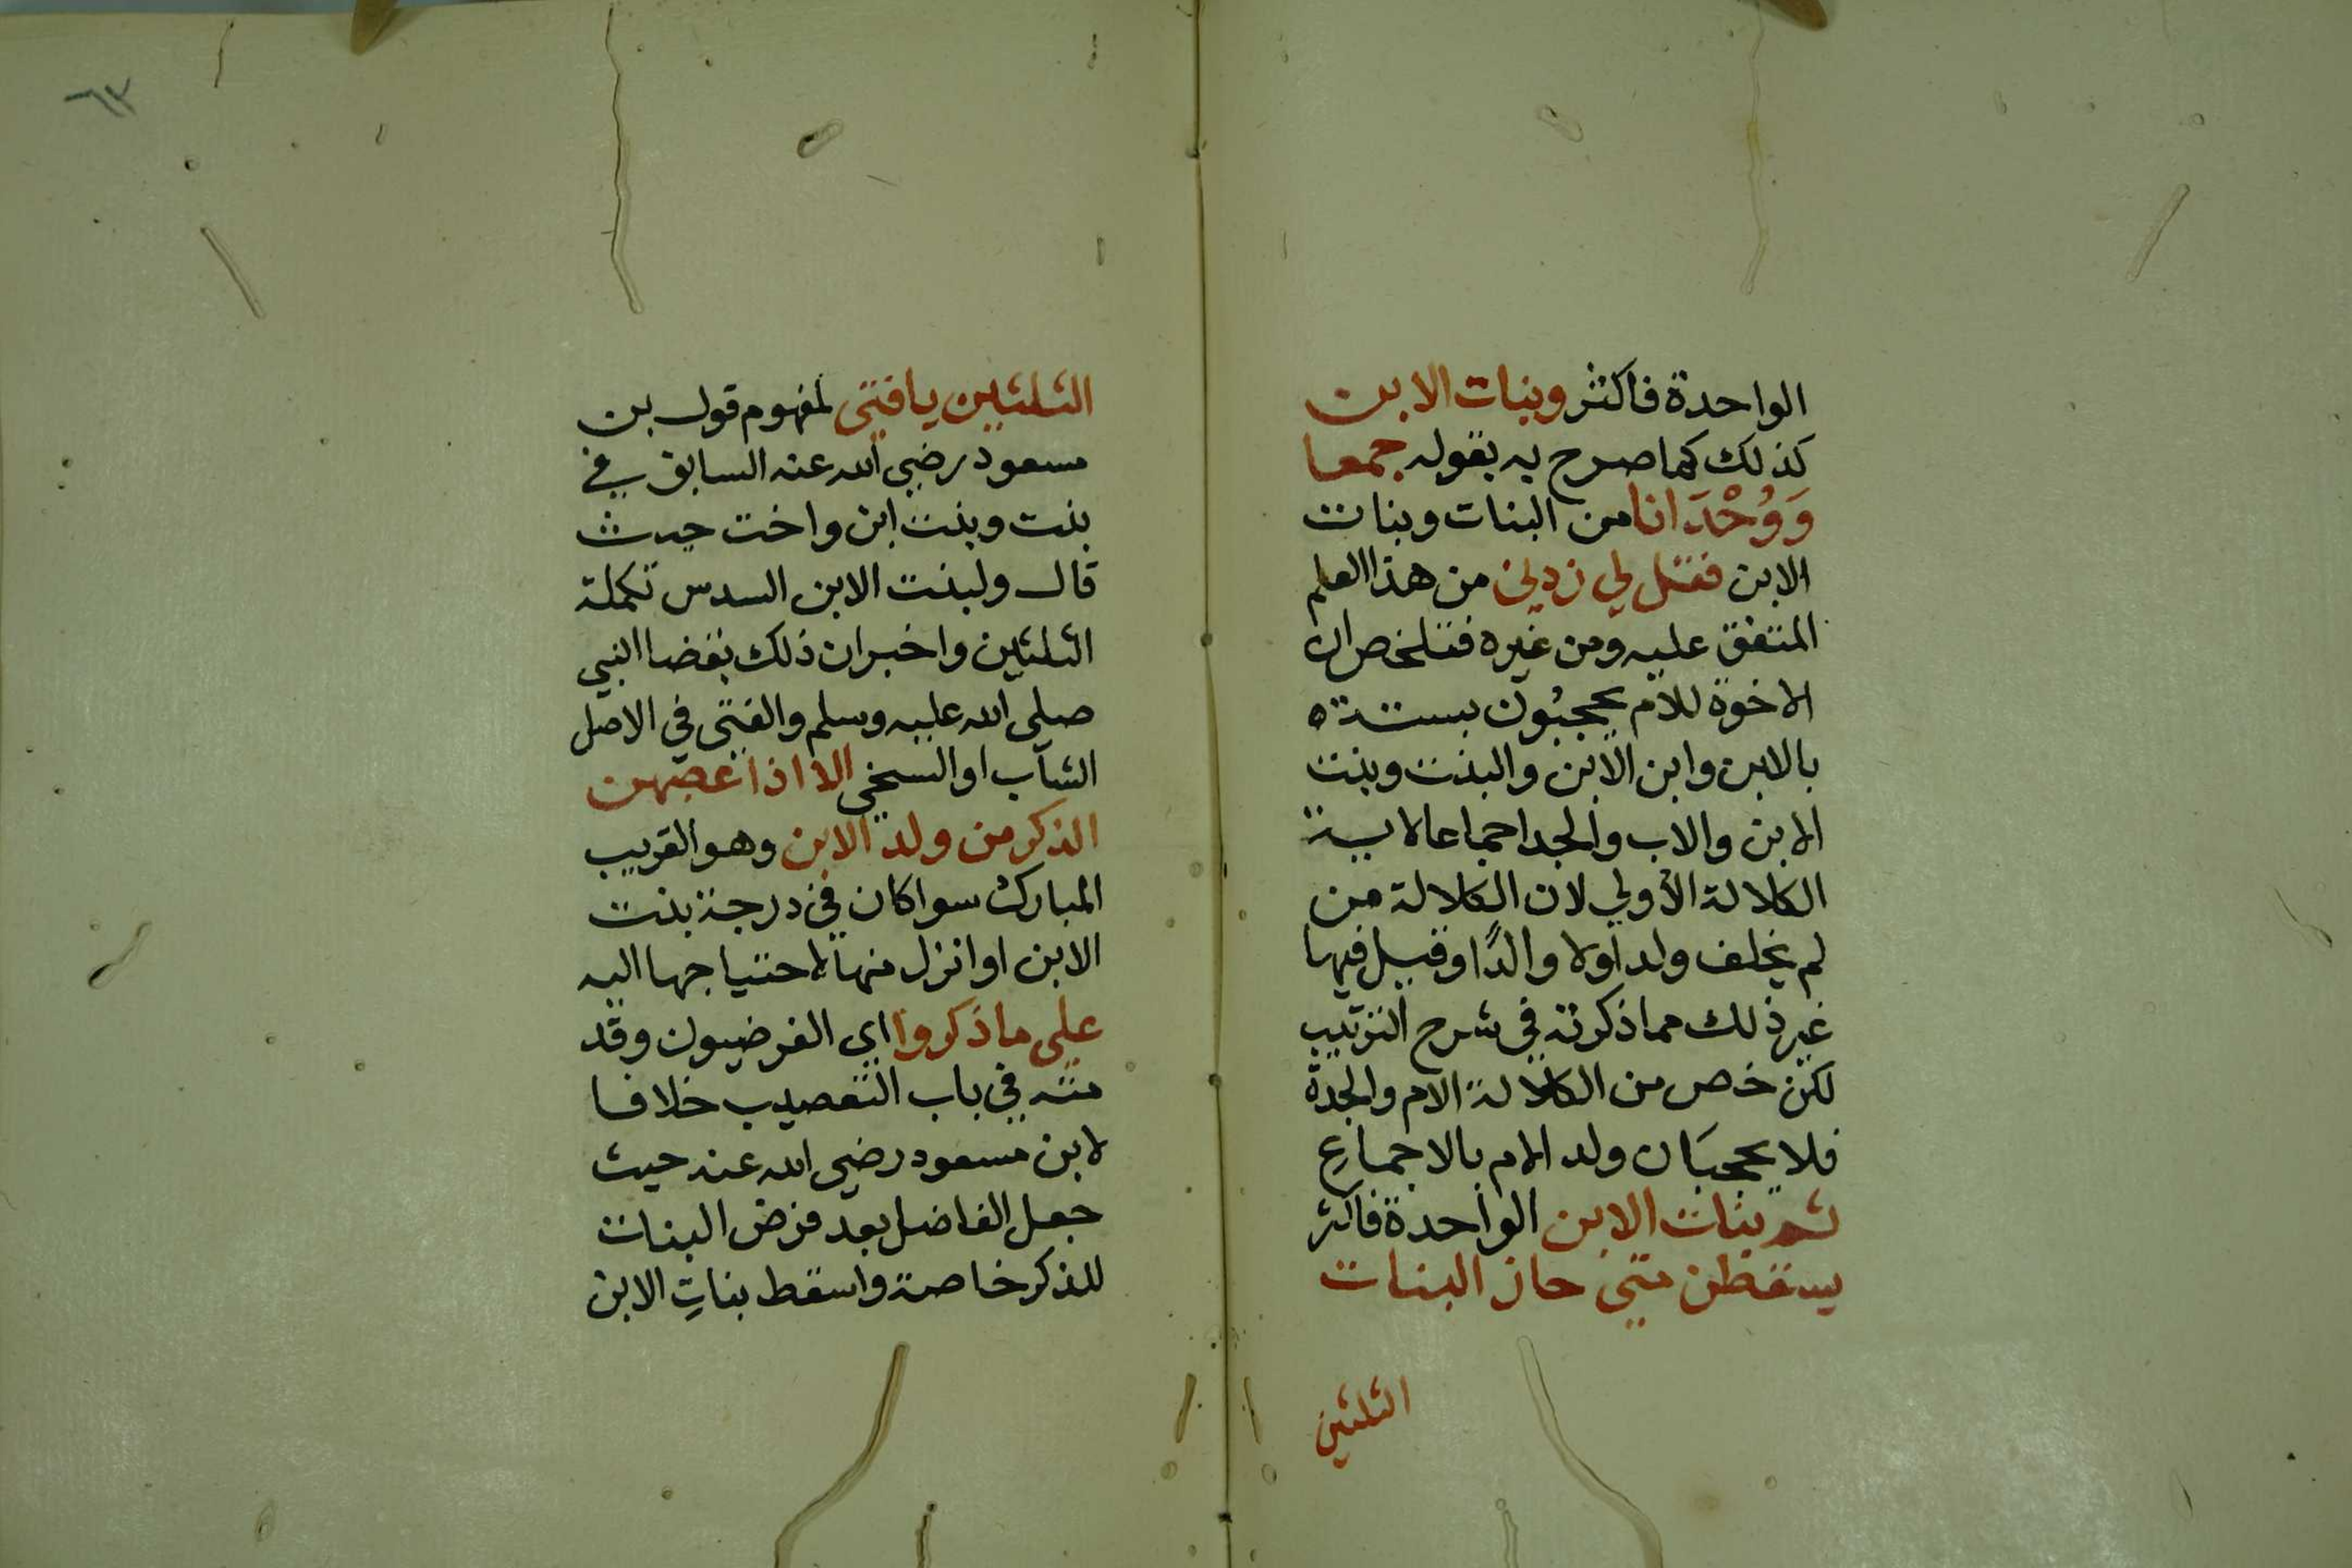 الواحدة فاكثر وبنات الابن
كذلك كما صرح به بقوله جمعا
وَوُحْدَانا من البنات وبنات
الابن فقل لي زدني من هذا العلم
المتفق عليه ومن غيره فتلخص ان
الاخوة للام يحجبُون بستة ه
بالابن وابن الابن والبنت وبنت
الابن والاب والجد اجماعا لاية
الكلالة الأولي لان الكلالة من
لم يخلف ولدا ولا والدًا وقيل فيها
غير ذلك مما ذكرته في شرح الترتيب
لكن خص من الكلالة الام والجدة
فلا يحجبَان ولد الام بالاجماعِ
ثم بنات الابن الواحدة فاكثر
يسقطن متي حاز البنات
الثلثين
٦٣
الثلثين يا فتى لمفهوم قول بن
مسعود رضي الله عنه السابق في
بنت وبنت ابن واخت حيث
قال ولبنت الابن السدس تكملة
الثلثين واخبر ان ذلك بقضا النبي
صلى الله عليه وسلم والفتى في الاصل
الشاب او السخي الا اذا عصبهن
الذكر من ولد الابن وهو القريب
المبارك سوا كان في درجة بنت
الابن او انزل منها لاحتياجها اليه
على ما ذكروا اي الفرضيون وقد
متـه في باب التعصيب خلافا
لابن مسعود رضي الله عنه حيث
جعل الفاضل بعد فرض البنات
للذكر خاصة واسقط بناتِ الابن